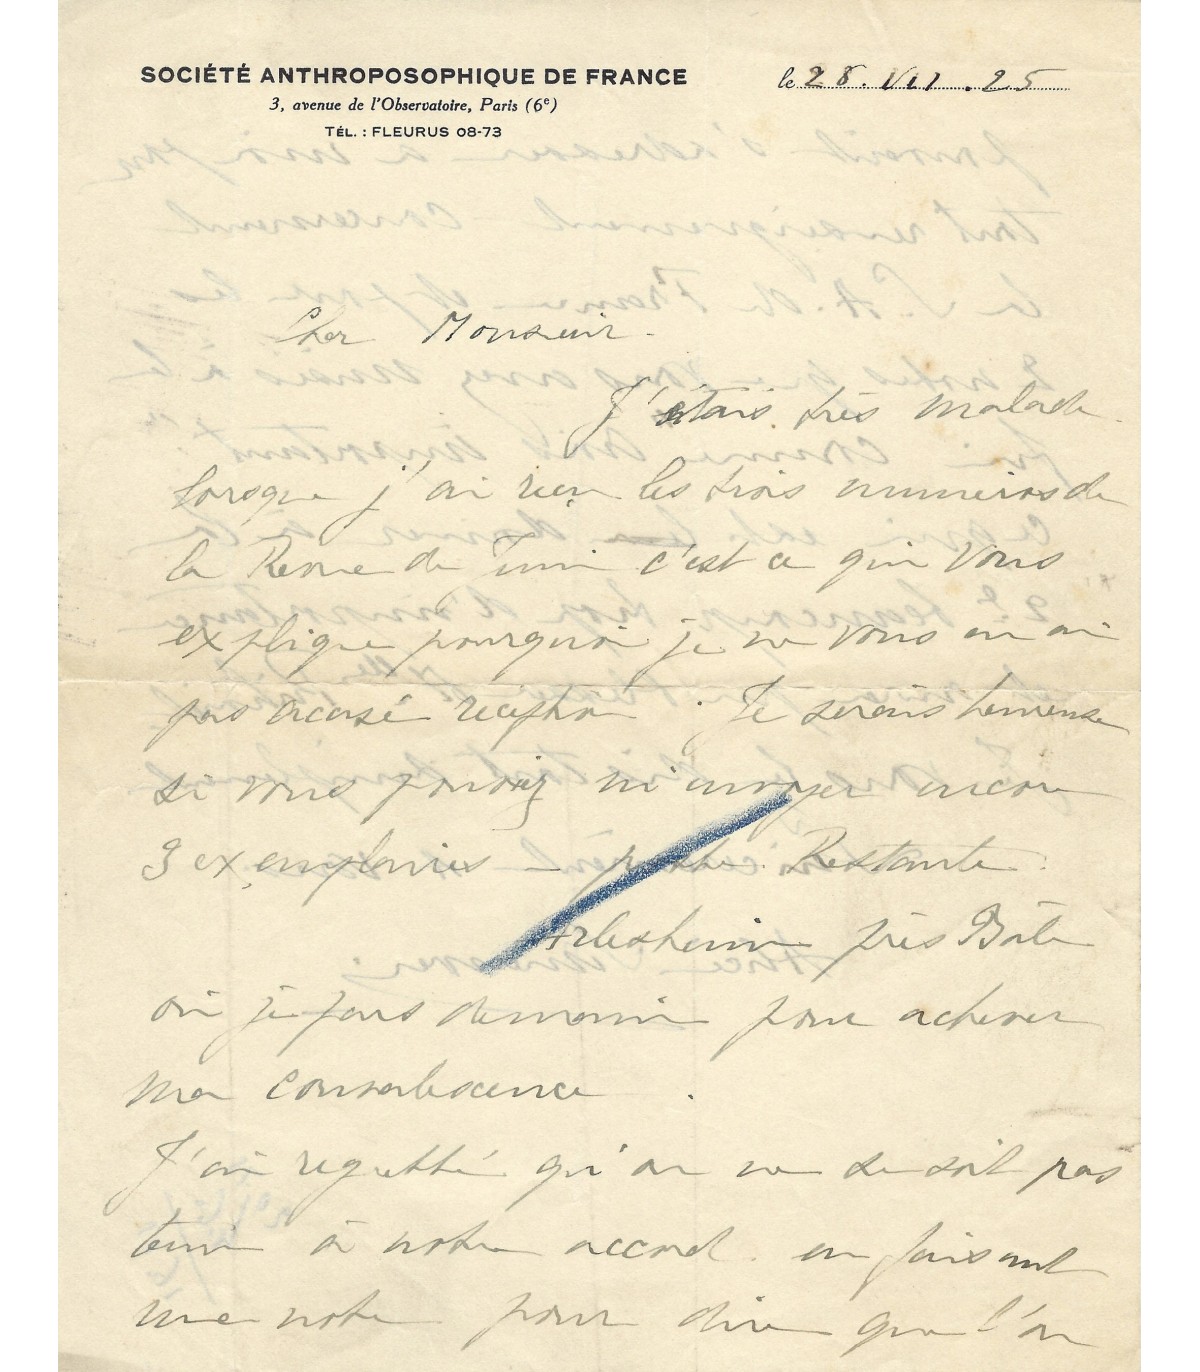 SOCIÉTÉ ANTHROPOSOPHIQUE DE FRANCE
3, avenue de l'Observatoire, Paris (6e)
TÉL. : FLEURUS 08-73
le 28. VII. 25
Cher Monsieur.
J'étais très malade
lorsque j'ai reçu les trois numéros de
la Revue de Juin c'est ce qui vous
explique pourquoi je ne vous en ai
pas accusé réception. Je serais heureuse
si vous pouviez m'envoyer encore
3 exemplaires poste Restante.
Arlesheim près Bâle
où je pars demain pour achever
ma convalescence.
J'ai regretté qu'on ne se soit pas
tenu à notre accord en faisant
une note pour dire que l'on